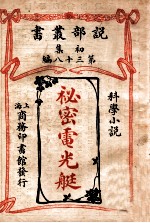 說部叢書
初集
第三十八編
科學小說
祕密電光艇
上海商務印書館發行